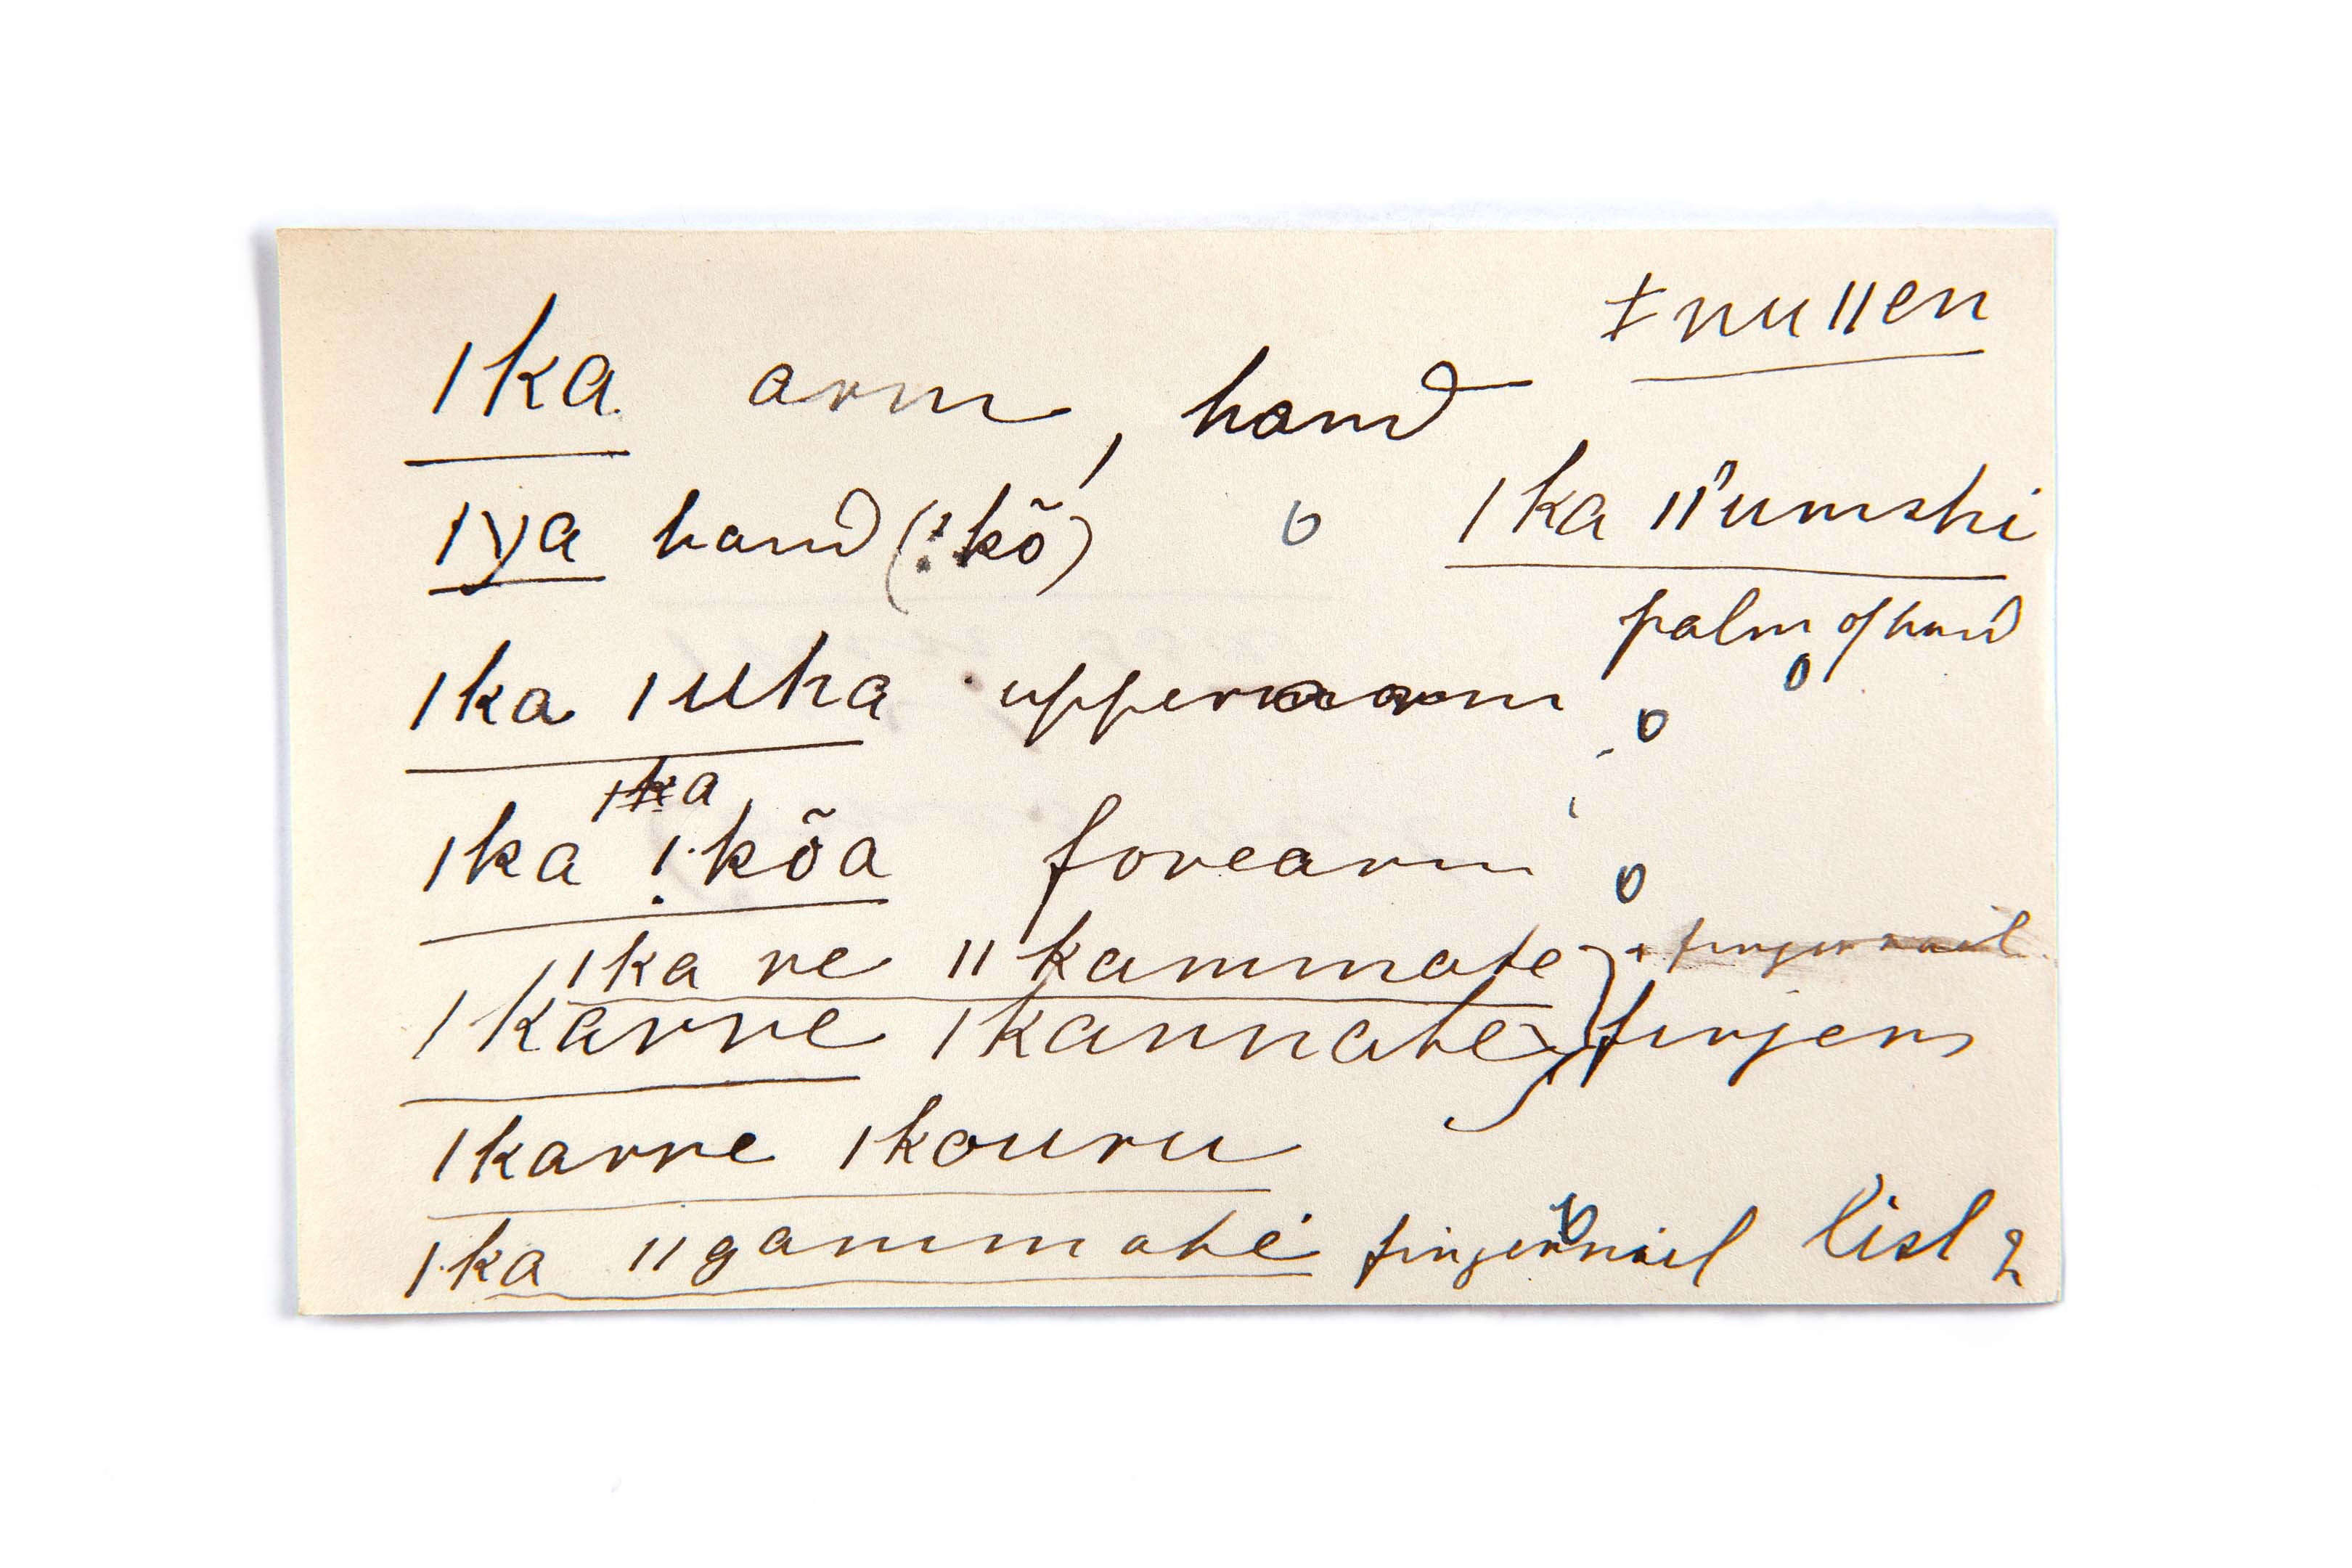 ǂnuǁen
ǀka arm, hand
ǀya hand (!kõ)
ǀka ǁ'umshi
palm of hand
ǀka ǀuha upper arm
ǀka
ǀka !kõa forearm
ǀka re ǁkammate fingernail
ǀkarre ǀkannate fingers
ǀkarre ǀkouru
ǀka ǁgammate fingernail list 2